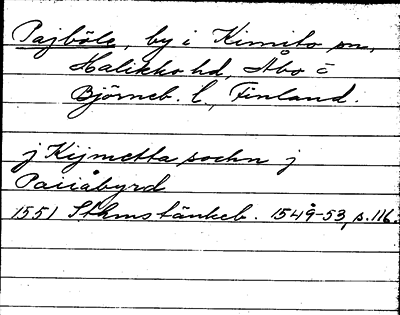 Pajböle, by i Kimito sn,
Halikko hd, Åbo o
Björneb. l., Finland.
j Kijmetta sochn j
Paiiåbyrd
1551 Sthmstänkeb. 1549-53, s. 116.